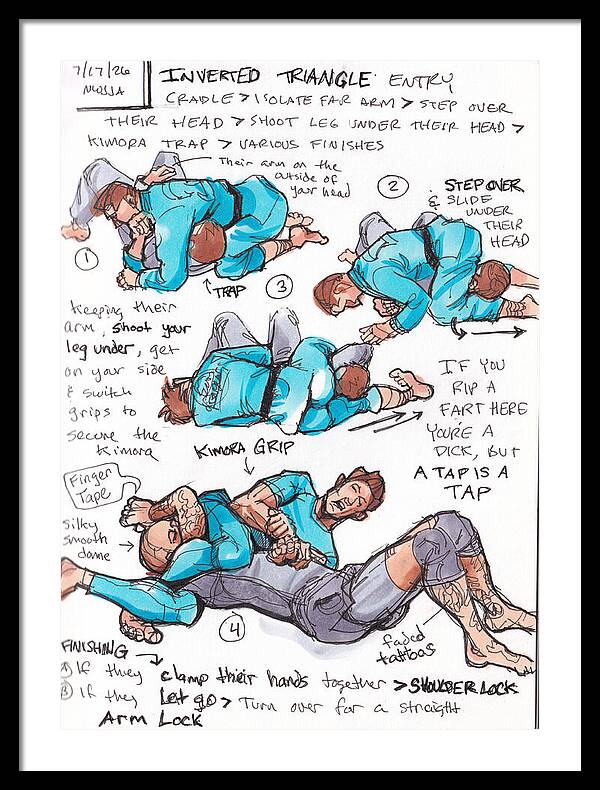 7/17/26
NOSSA
INVERTED TRIANGLE ENTRY
CRADLE > ISOLATE FAR ARM > STEP OVER
THEIR HEAD > SHOOT LEG UNDER THEIR HEAD >
KIMORA TRAP > VARIOUS FINISHES
Their arm on the
outside of
your head
1
TRAP
2
STEP OVER
& SLIDE
UNDER
THEIR
HEAD
3
Keeping their
arm, shoot your
leg under, get
on your side
& switch
grips to
secure the
Kimora
IF YOU
RIP A
FART HERE
YOU'RE A
DICK, BUT
A TAP IS A
TAP
KIMORA GRIP
Finger
Tape
silky
smooth
dome
4
faded
tattoos
FINISHING
A) If they clamp their hands together > SHOULDER LOCK
B) If they Let go > Turn over for a straight
Arm Lock